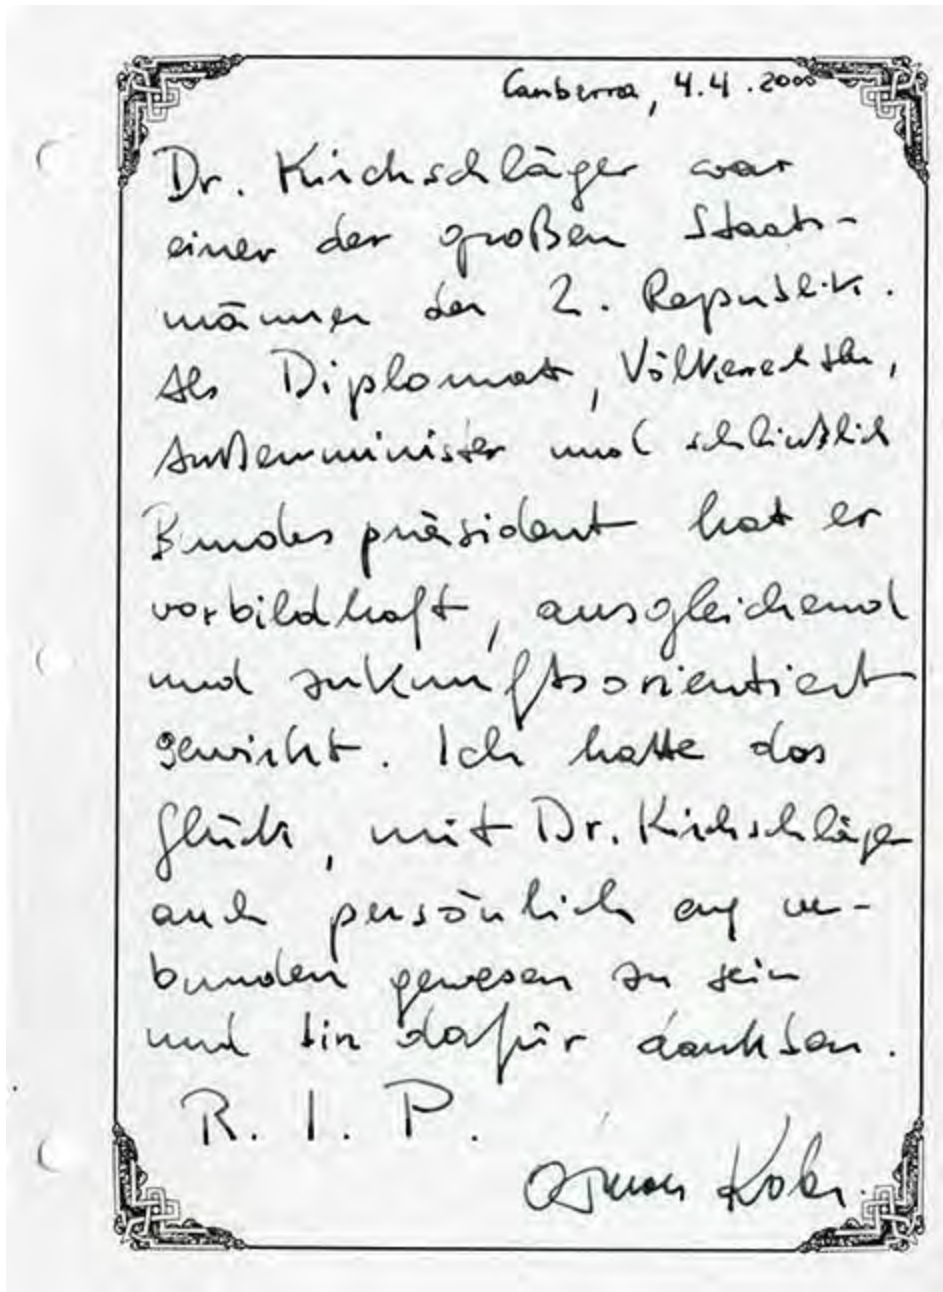 Canberra, 4.4.2000
Dr. Kirchschläger war
einer der großen Staats-
männer der 2. Republik.
Als Diplomat, Völkerrechtler,
Außenminister und schließlich
Bundespräsident hat er
vorbildhaft, ausgleichend
und zukunftsorientiert
gewirkt. Ich hatte das
Glück, mit Dr. Kirchschläger
auch persönlich eng ver-
bunden gewesen zu sein
und bin dafür dankbar.
R. I. P.